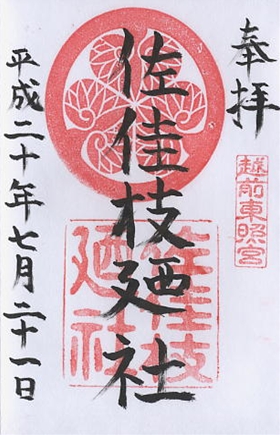 奉拝
越前東照宮
佐佳枝廼社
佐佳枝
廼社
平成二十年七月二十一日